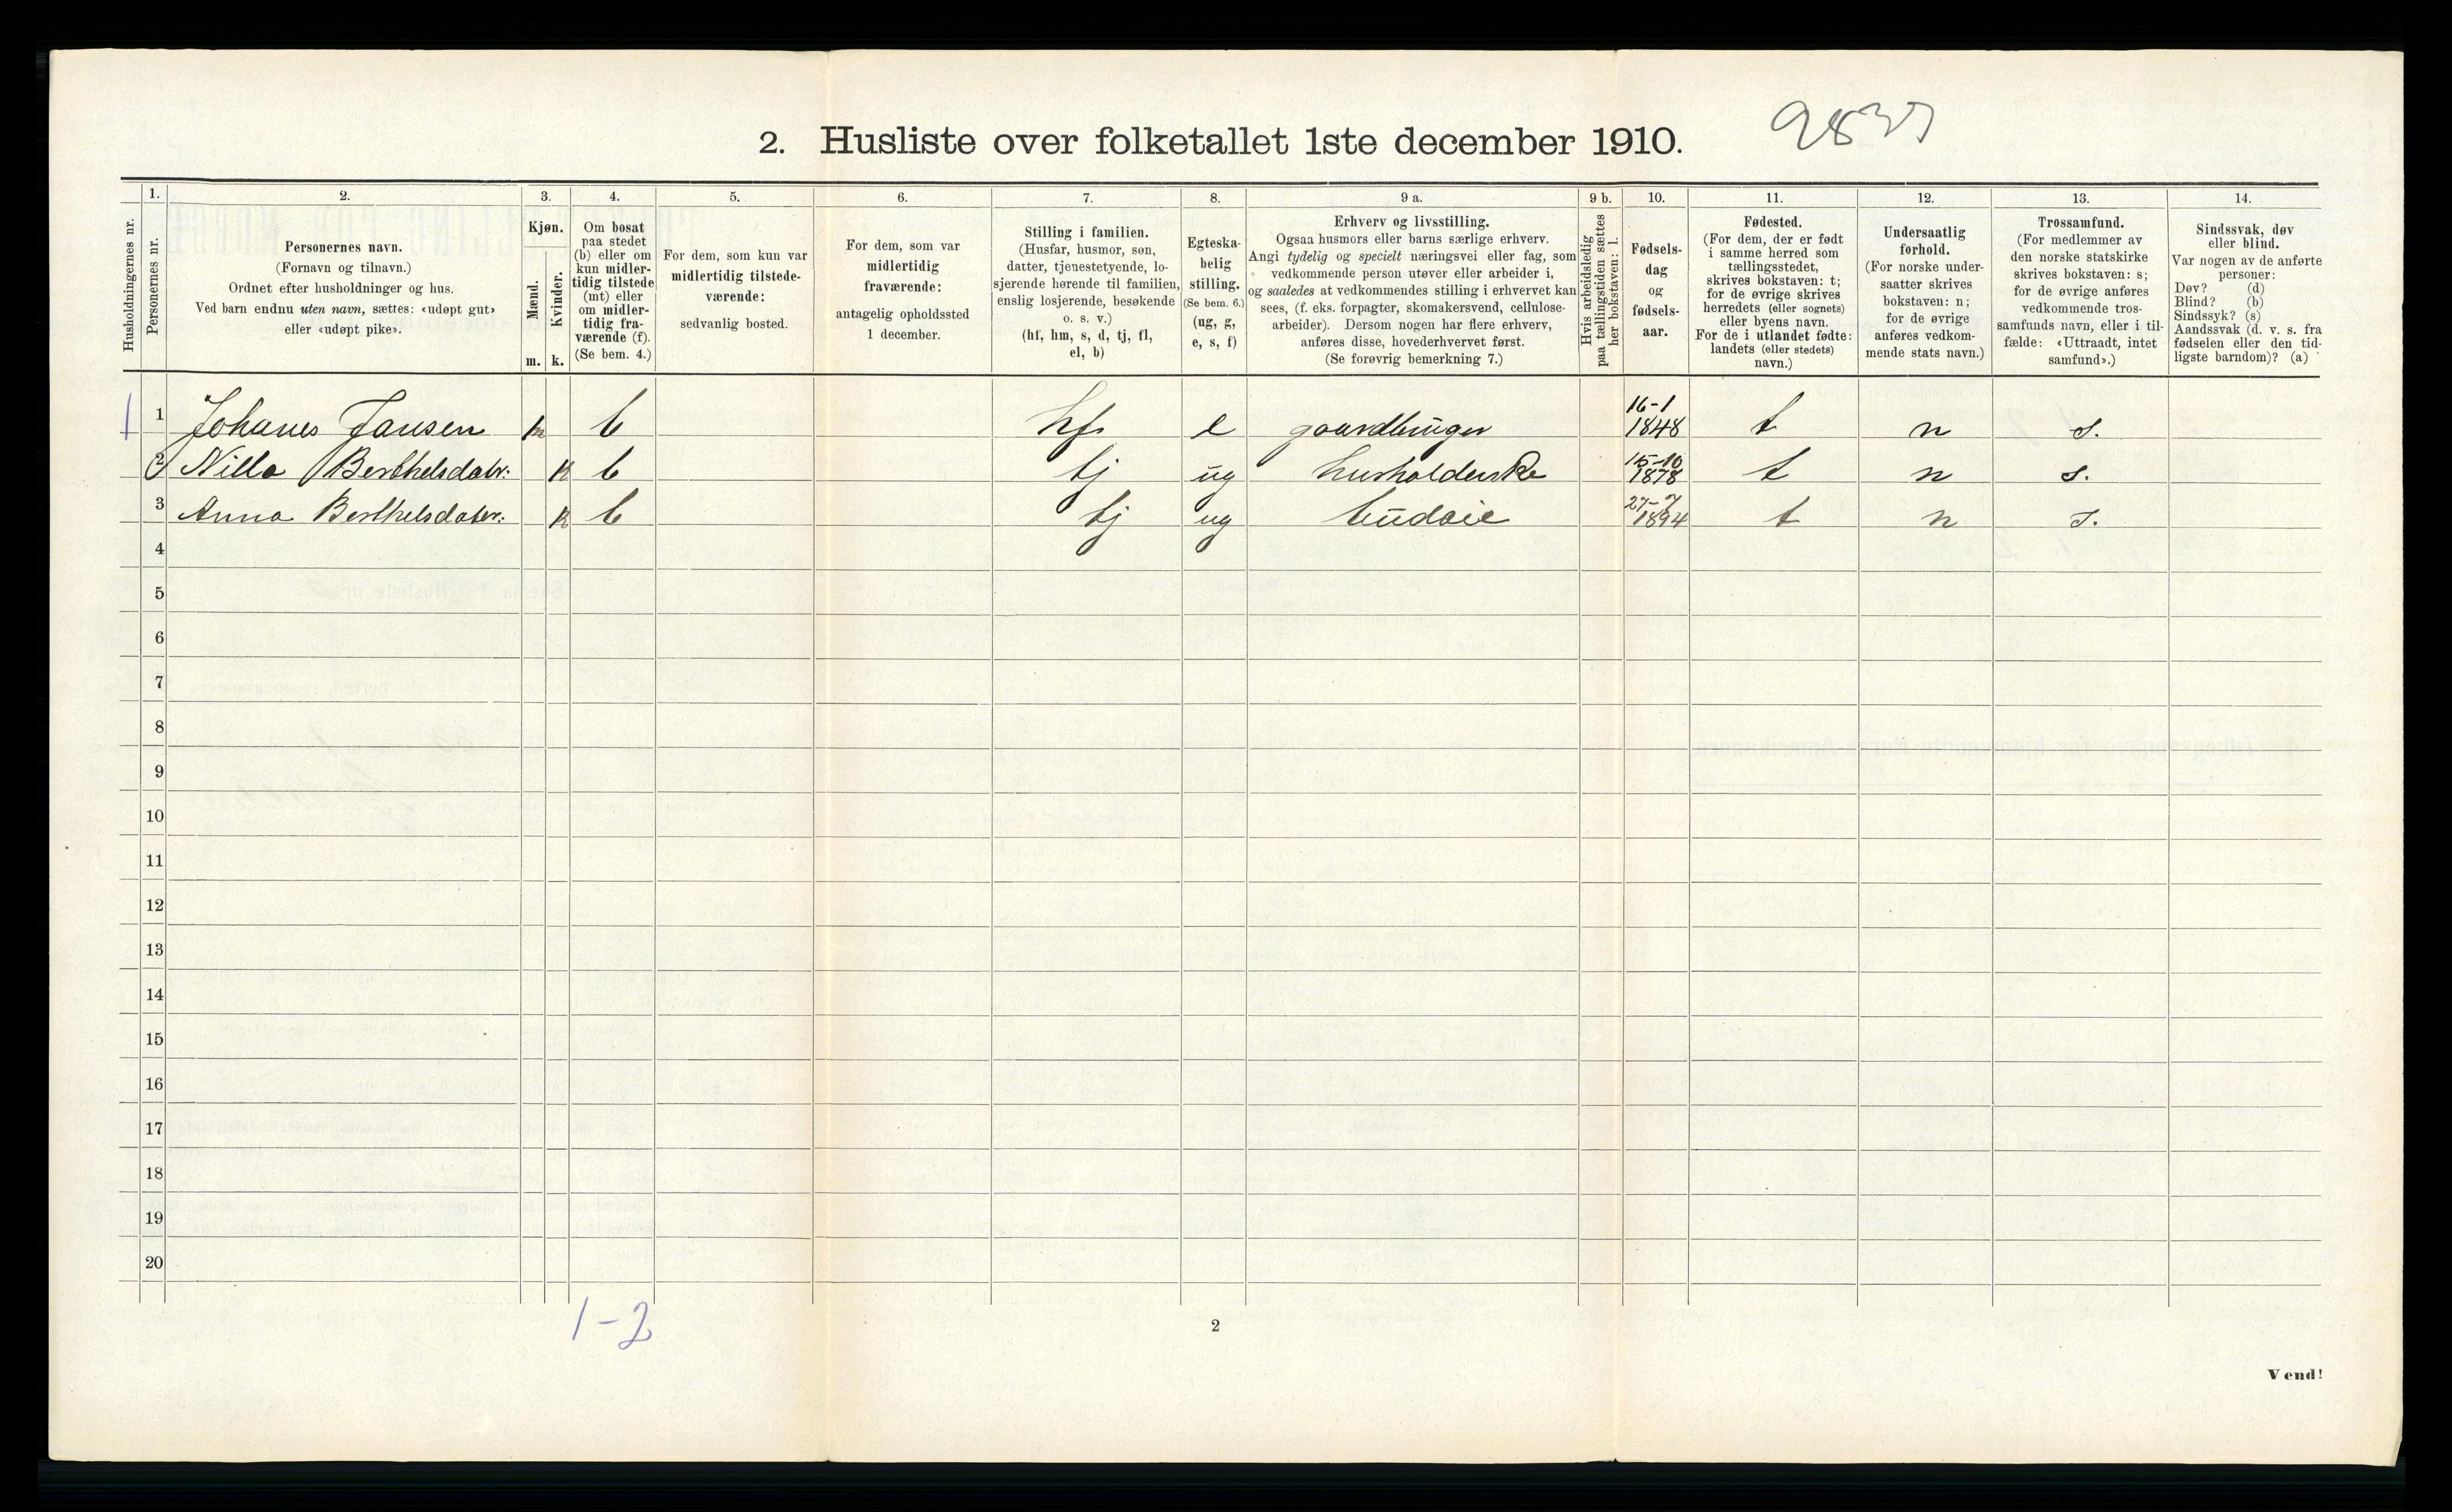 2. Husliste over folketallet 1ste december 1910.
Husholdningernes nr.
1.
Personernes nr.
2.
Personernes navn.
(Fornavn og tilnavn.)
Ordnet efter husholdninger og hus.
Ved barn endnu uten navn, sættes: «udøpt gut»
eller «udøpt pike».
3.
Kjøn.
Mænd.
Kvinder.
m. k.
4.
Om bosat
paa stedet
(b) eller om
kun midler-
tidig tilstede
(mt) eller
om midler-
tidig fra-
værende (f).
(Se bem. 4.)
5.
For dem, som kun var
midlertidig tilstede-
værende:
sedvanlig bosted.
6.
For dem, som var
midlertidig
fraværende:
antagelig opholdssted
1 december.
7.
Stilling i familien.
(Husfar, husmor, søn,
datter, tjenestetyende, lo-
sjerende hørende til familien,
enslig losjerende, besøkende
o. s. v.)
(hf, hm, s, d, tj, fl,
el, b)
8.
Egteska-
belig
stilling.
(Se bem. 6.)
(ug, g,
e, s, f)
9 a.
Erhverv og livsstilling.
Ogsaa husmors eller barns særlige erhverv.
Angi tydelig og specielt næringsvei eller fag, som
vedkommende person utøver eller arbeider i,
og saaledes at vedkommendes stilling i erhvervet kan
sees, (f. eks. forpagter, skomakersvend, cellulose-
arbeider). Dersom nogen har flere erhverv,
anføres disse, hovederhvervet først.
(Se forøvrig bemerkning 7.)
9 b.
Hvis arbeidsledig
paa tællingstiden sættes
her bokstaven: l.
10.
Fødsels-
dag
og
fødsels-
aar.
11.
Fødested.
(For dem, der er født
i samme herred som
tællingsstedet,
skrives bokstaven: t;
for de øvrige skrives
herredets (eller sognets)
eller byens navn.
For de i utlandet fødte:
landets (eller stedets)
navn.)
12.
Undersaatlig
forhold.
(For norske under-
saatter skrives
bokstaven: n;
for de øvrige
anføres vedkom-
mende stats navn.)
13.
Trossamfund.
(For medlemmer av
den norske statskirke
skrives bokstaven: s;
for de øvrige anføres
vedkommende tros-
samfunds navn, eller i til-
fælde: «Uttraadt, intet
samfund».)
14.
Sindssvak, døv
eller blind.
Var nogen av de anførte
personer:
Døv? (d)
Blind? (b)
Sindssyk? (s)
Aandssvak (d. v. s. fra
fødselen eller den tid-
ligste barndom)? (a)
1 1 Johanes Jansen m b hf e gaardbruger 16-1 1848 t n s.
2 Nilla Berthelsdatr: k b tj ug husholderske 15-10 1878 t n s.
3 Anna Berthelsdater: k b tj ug budeie 27-7 1894 t n s.
4
5
6
7
8
9
10
11
12
13
14
15
16
17
18
19
20
1-2
2
Vend!